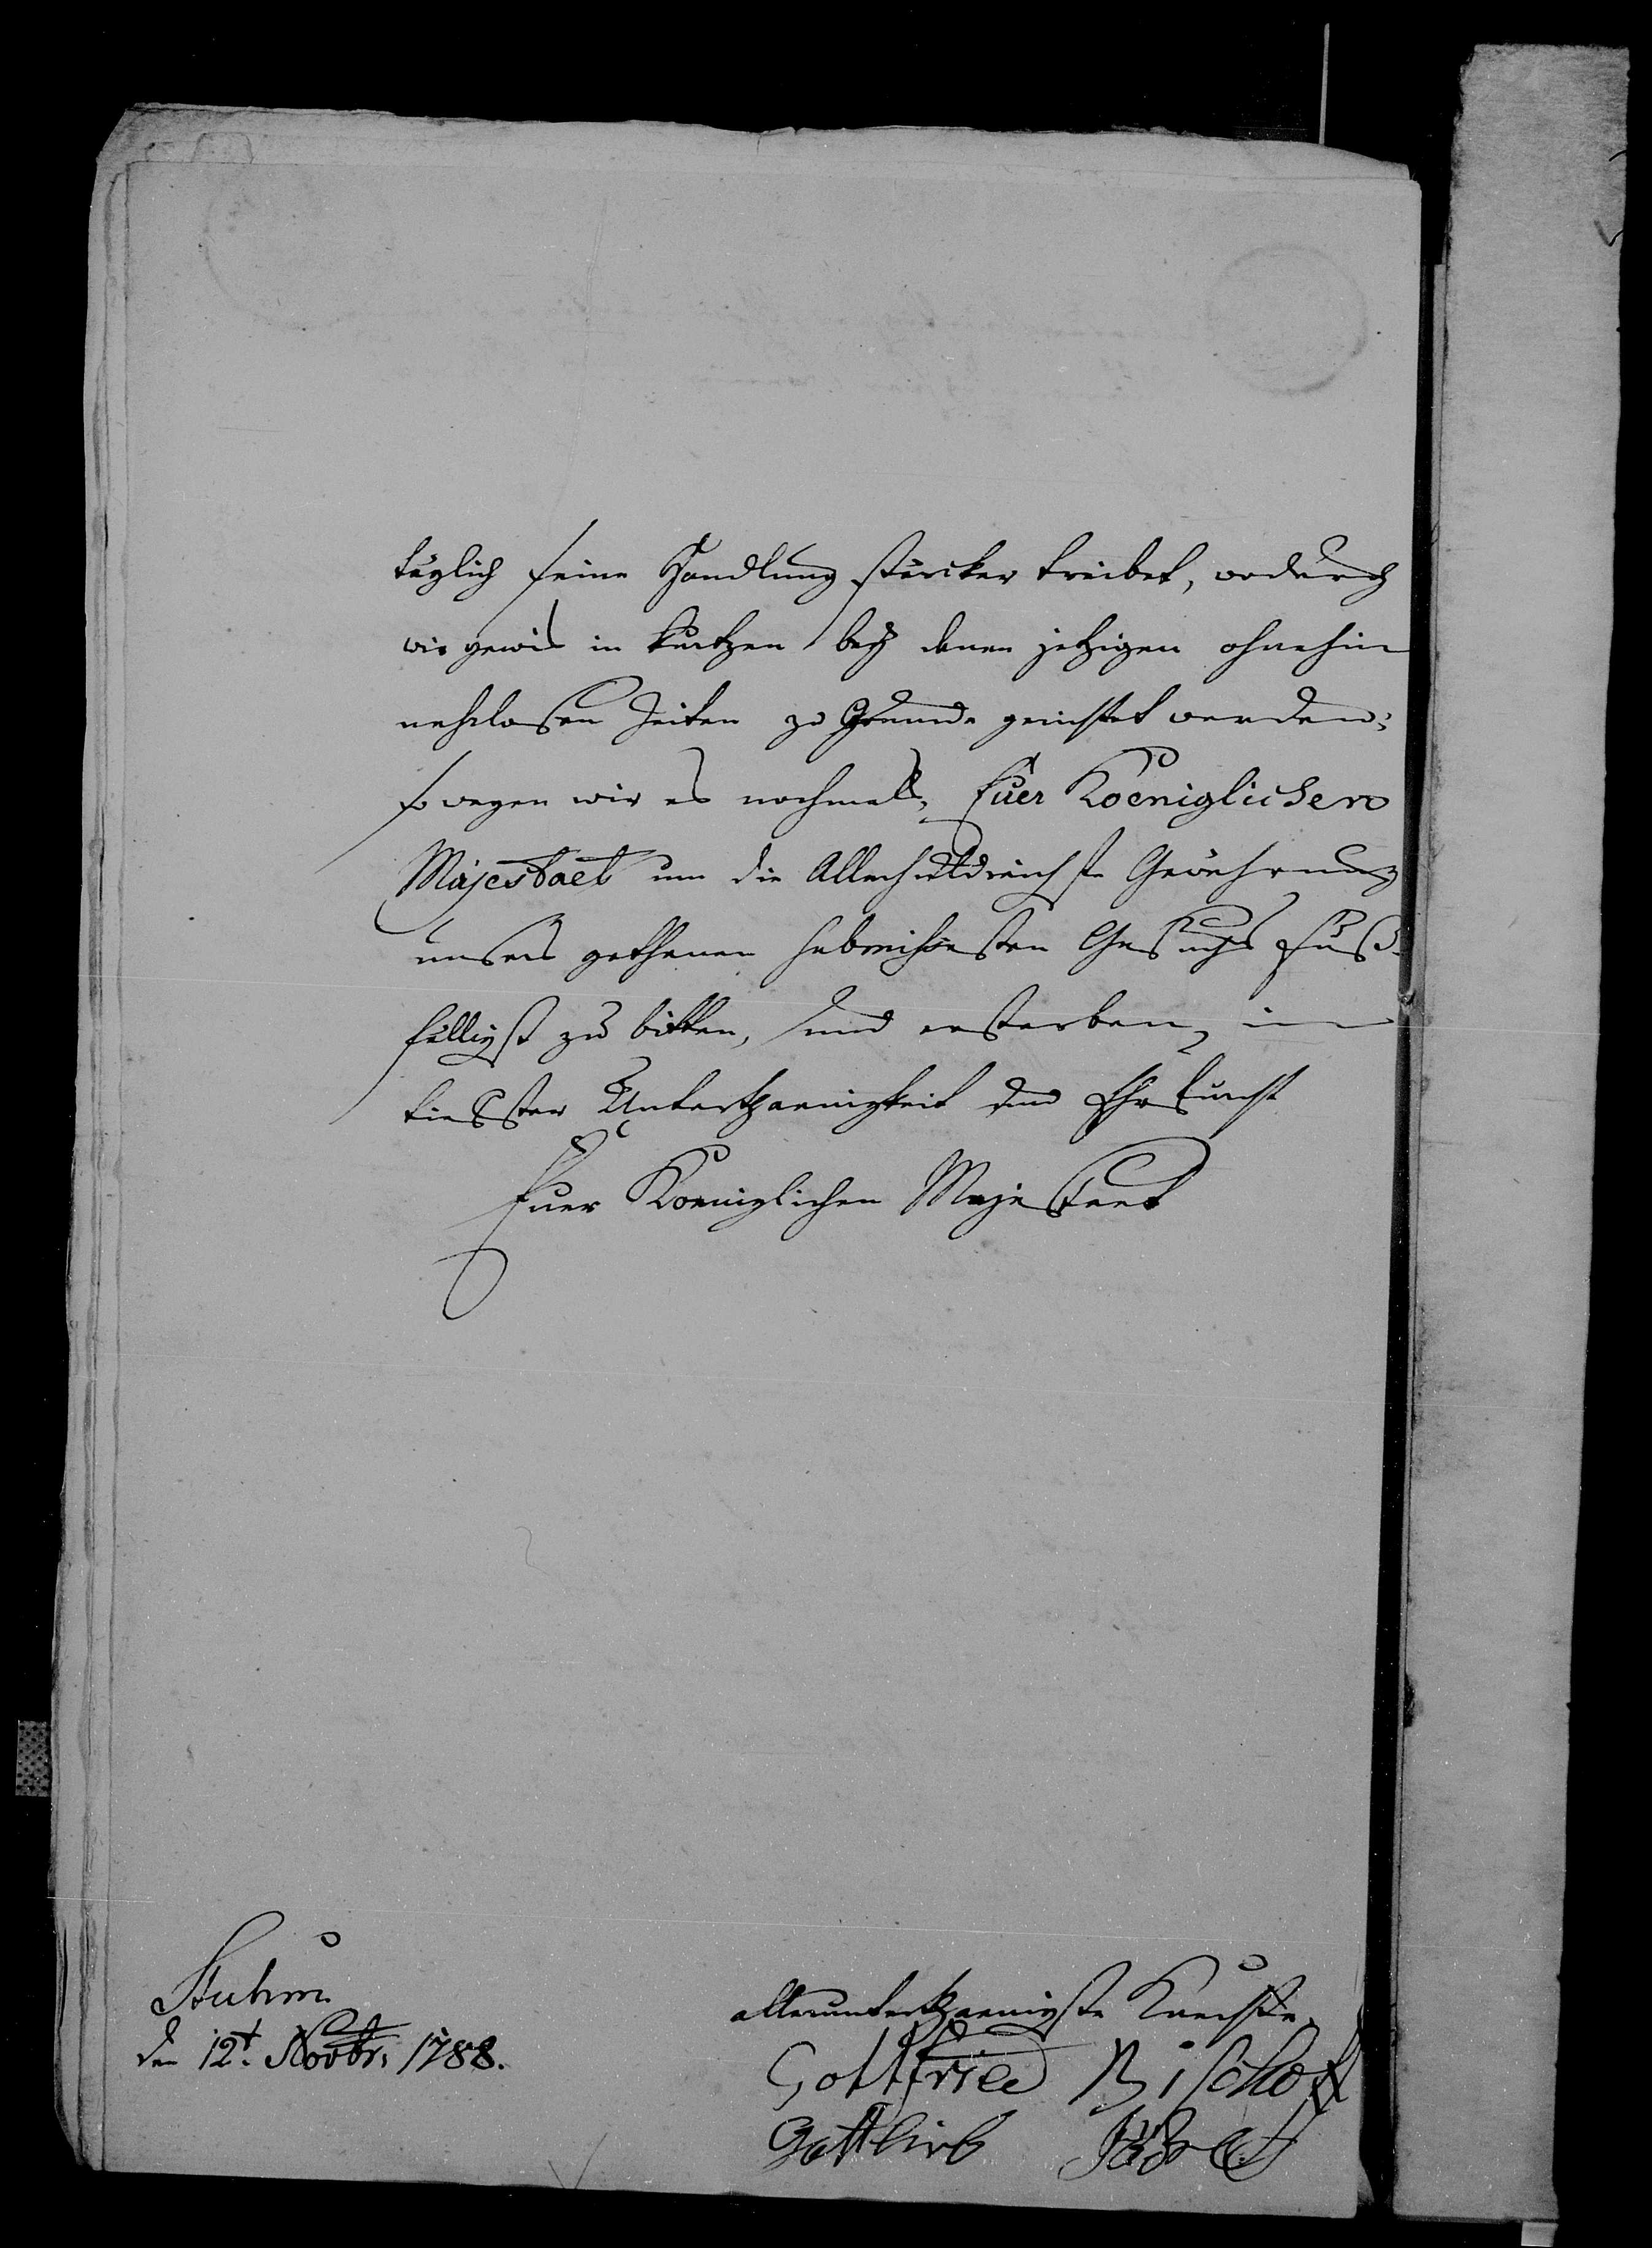 täglich seine Handlung stärcker treibet, wodurch
wir gewis in kurtzen bey denen jetzigen ohnehin
nahrlosen Zeiten zu Grunde gerichtet werden;
wegen wir es nochmals, Euer Koeniglichen
Majestaet um die Allerhuldreichste Gewährung
unsers gethanen Gesuchs fuß-
fälligst zu bitten, und ersterben in
tieffster Unterthaenigkeit und Ehrfurcht
Euer Koeniglichen Majestaet
Stuhm
den 12t. Novbr. 1788.
allerunterthaenigste Knechte
Gottfried Bischoff
Gottlieb